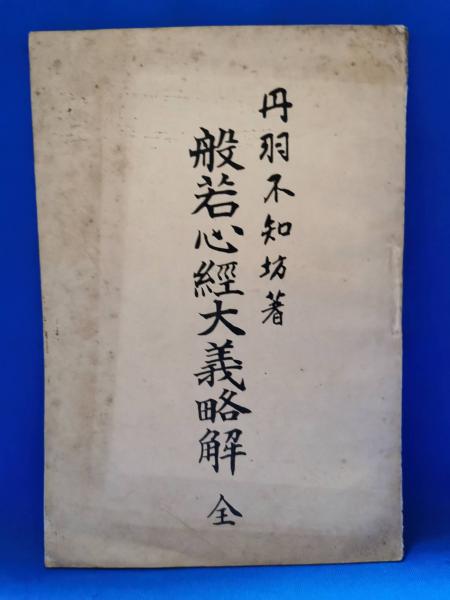 丹羽不知坊著
般若心經大義略解 全